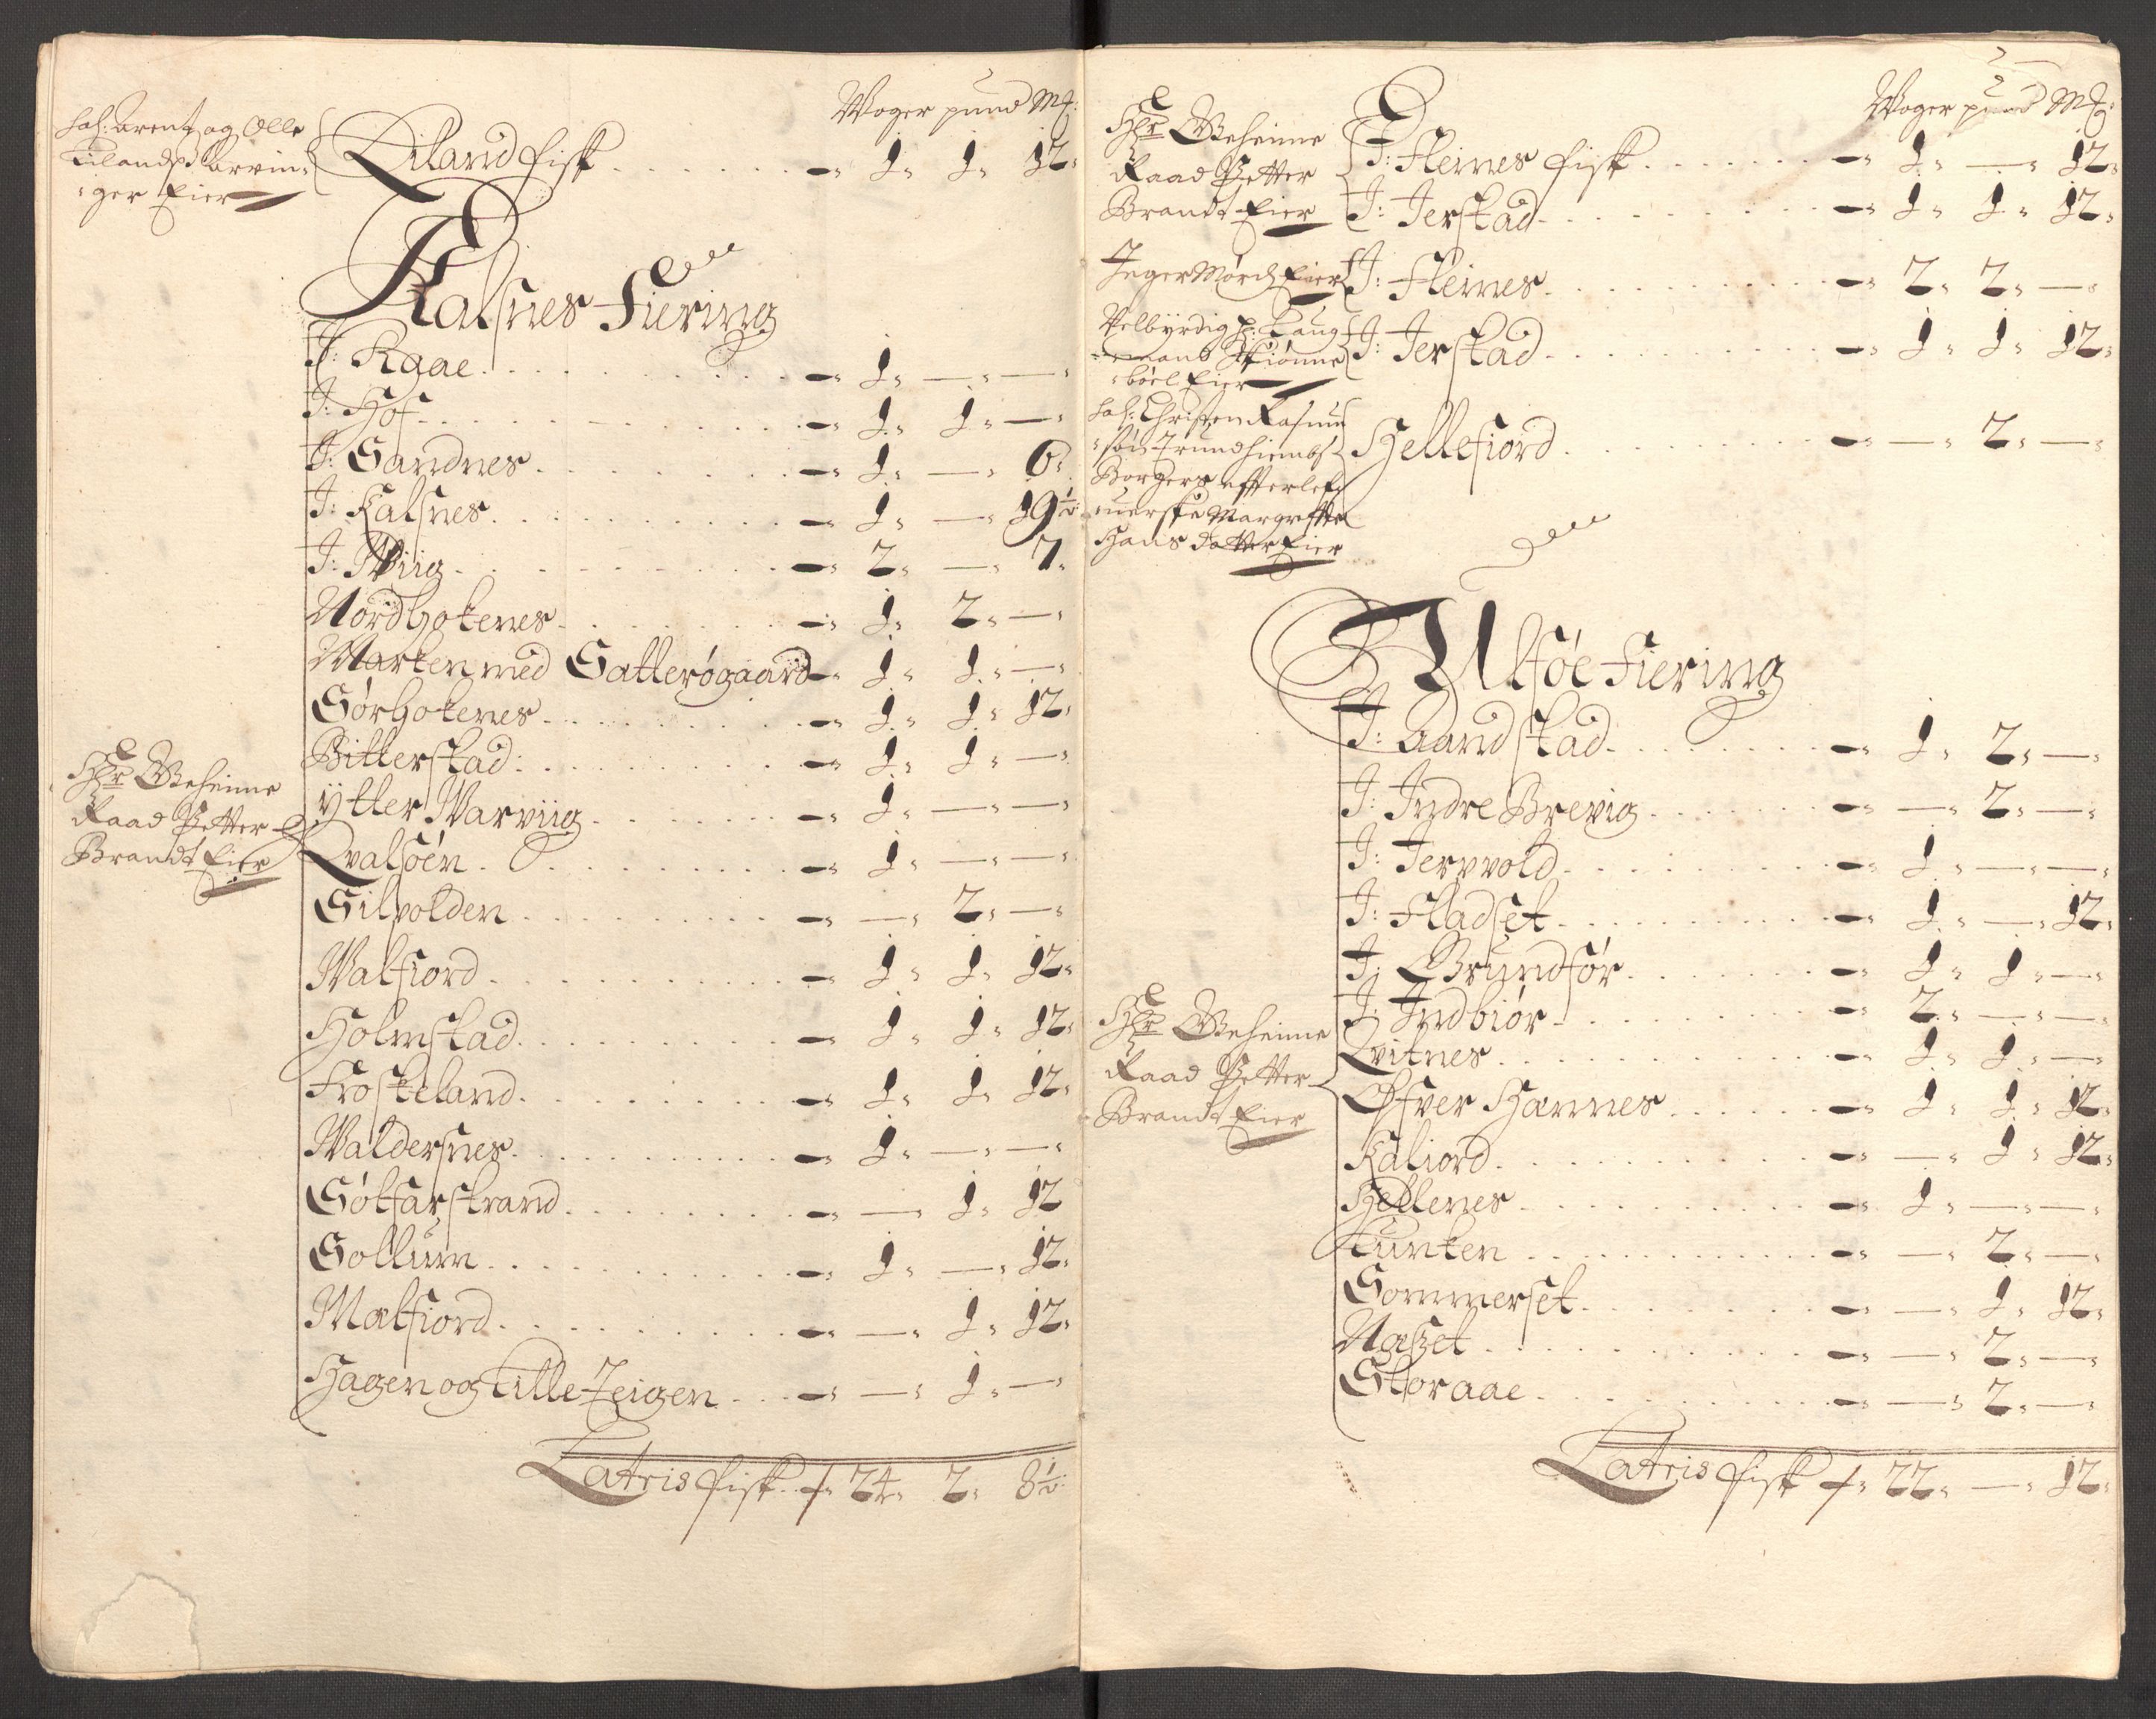 Woger pund Mk:
Sal: Arent og Olle
Eilands Arvin-
ger Eier
Eiland fisk - 1 " 1 " 12 "
Kalsnes Fiering
J: Raae - 1 " — " — "
J: Hof - 1 " 1 " — "
J: Sandnes - 1 " — " 6 "
J: Kalsnes - 1 " — " 19½ "
J: Wiig - 2 " — " 7 "
Nordhokenes - 1 " 2 " — "
Marken med Satterøgaard - 1 " 1 " — "
Sørhokenes - 1 " 1 " 12 "
Bitterstad: - 1 " 1 " — "
Hr Geheime
Raad Petter
Brandt Eier
ÿtter Warviig - 1 " — " — "
Qvalsöen - 1 " — " — "
Silvolden - — " 2 " — "
Walfiord - 1 " 1 " 12 "
Holmstad - 1 " 1 " 12 "
Froskeland - 1 " 1 " 12 "
Waldersnes - 1 " — " — "
Søltarstrand - — " 1 " 12
Sollum - 1 " — " 12 "
Malfiord - — " 1 " 12 "
Hagen og Lille Teigen - — " 1 " — "
Latris fisk - 24 " 2 " 8½ "
Woger pund Mk:
Hr Geheime
Raad Petter
Brandt Eier
J: Fleines fisk - 1 " — " 12 "
J: Jerstad - 1 " 1 " 12 "
Jeger Mørch Eier
J: Fleines - 2 " 2 " — "
Velbyrdig H: Laug-
mand
böel Eier
J: Jerstad - 1 " 1 " 12 "
Sal: Christen Rasmus-
søn Trundhiembs
Borgers effterlef-
uerske Margrette
Hans datter Eier
Hellefiord - — " 2 " — "
Ulföe Fiering
J: Aandstad - 1 " 2 " — "
J: Indre Brevig - — " 2 " — "
J: Jervvold - 1 " — " — "
J: Fladset - 1 " — " 12 "
J: Grundfør - 1 " 1 " — "
J: Indbiør - 2 " — " — "
Hr Geheime
Raad Petter
Brandt Eier
Qvitnes - 1 " 1 " — "
Øfver Hannes - 1 " 1 " 12 "
Kaliord - — " 1 " 12 "
Hellenes - 1 " — " — "
Kunken - — " 2 " — "
Sommerset - — " 1 " 12 "
Naset - — " 2 " — "
Storaae - — " 2 " — "
Latris fisk - 22 " — " 12 "